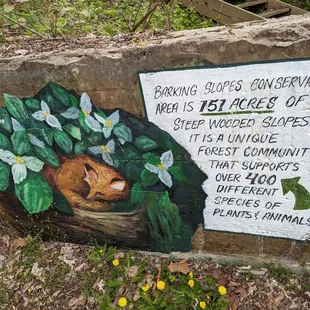 BARKING SLOPES CONSERVA
AREA IS 151 ACRES OF
STEEP WOODED SLOPES
IT IS A UNIQUE
FOREST COMMUNIT
THAT SUPPORTS
OVER 400
DIFFERENT
SPECIES OF
PLANTS & ANIMALS